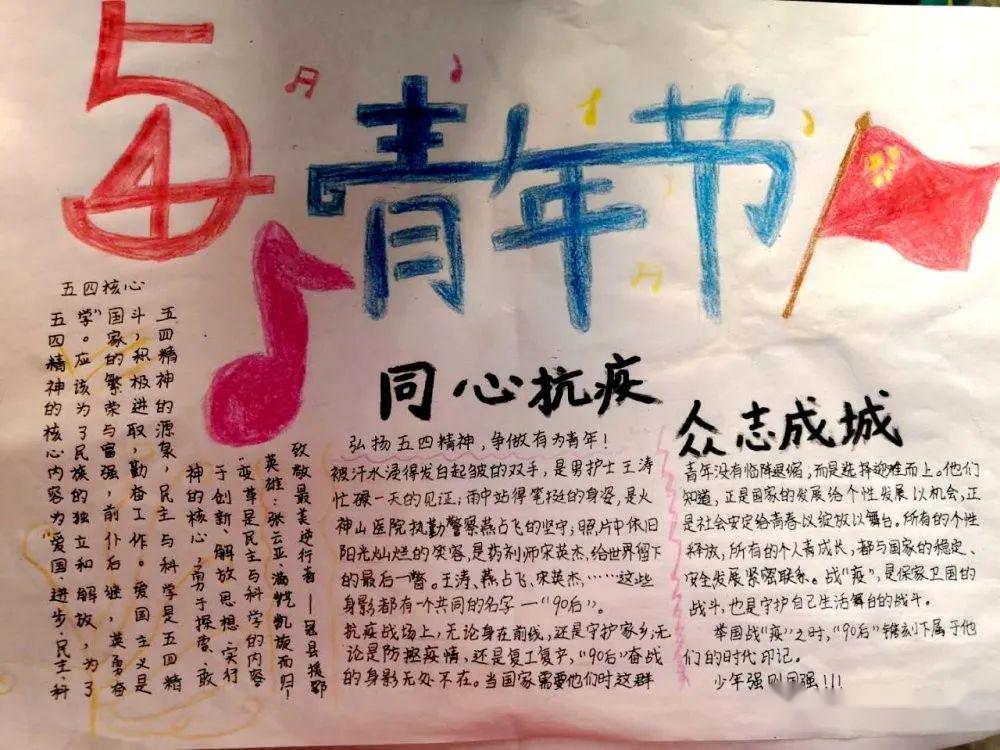 54
青年节
五四核心
五四精神的核心内容为“爱国、进步、民主、科
学”。应该为了民族的独立和解放,为了
国家的繁荣与富强,前仆后继,英勇奋
斗,积极进取,勤奋工作。爱国主义是
五四精神的源泉,民主与科学是五四精
神的核心,勇于探索、敢
于创新、解放思想、实行
变革是民主与科学的内容
致敬最美逆行者——冠县援鄂
英雄:张云亚.满恺凯旋而归!
同心抗疫
众志成城
弘扬五四精神,争做有为青年!
被汗水浸得发白起皱的双手,是男护士王涛
忙碌一天的见证;雨中站得笔挺的身姿,是火
神山医院执勤警察燕占飞的坚守;照片中依旧
阳光灿烂的笑容,是药剂师宋英杰给世界留下
的最后一瞥。王涛、燕占飞、宋英杰,……这些
身影都有一个共同的名字—“90后”。
抗疫战场上,无论身在前线,还是守护家乡,无
论是防控疫情,还是复工复产,“90后”奋战
的身影无处不在。当国家需要他们时这群
青年没有临阵退缩,而是选择迎难而上。他们
知道,正是国家的发展给个性发展以机会,正
是社会安定给青春以绽放以舞台。所有的个性
释放,所有的个人青成长,都与国家的稳定、
安全发展紧密联系。战“疫”,是保家卫国的
战斗,也是守护自己生活舞台的战斗。
举国战“疫”之时,“90后”镌刻下属于他
们的时代印记。
少年强则国强!!!